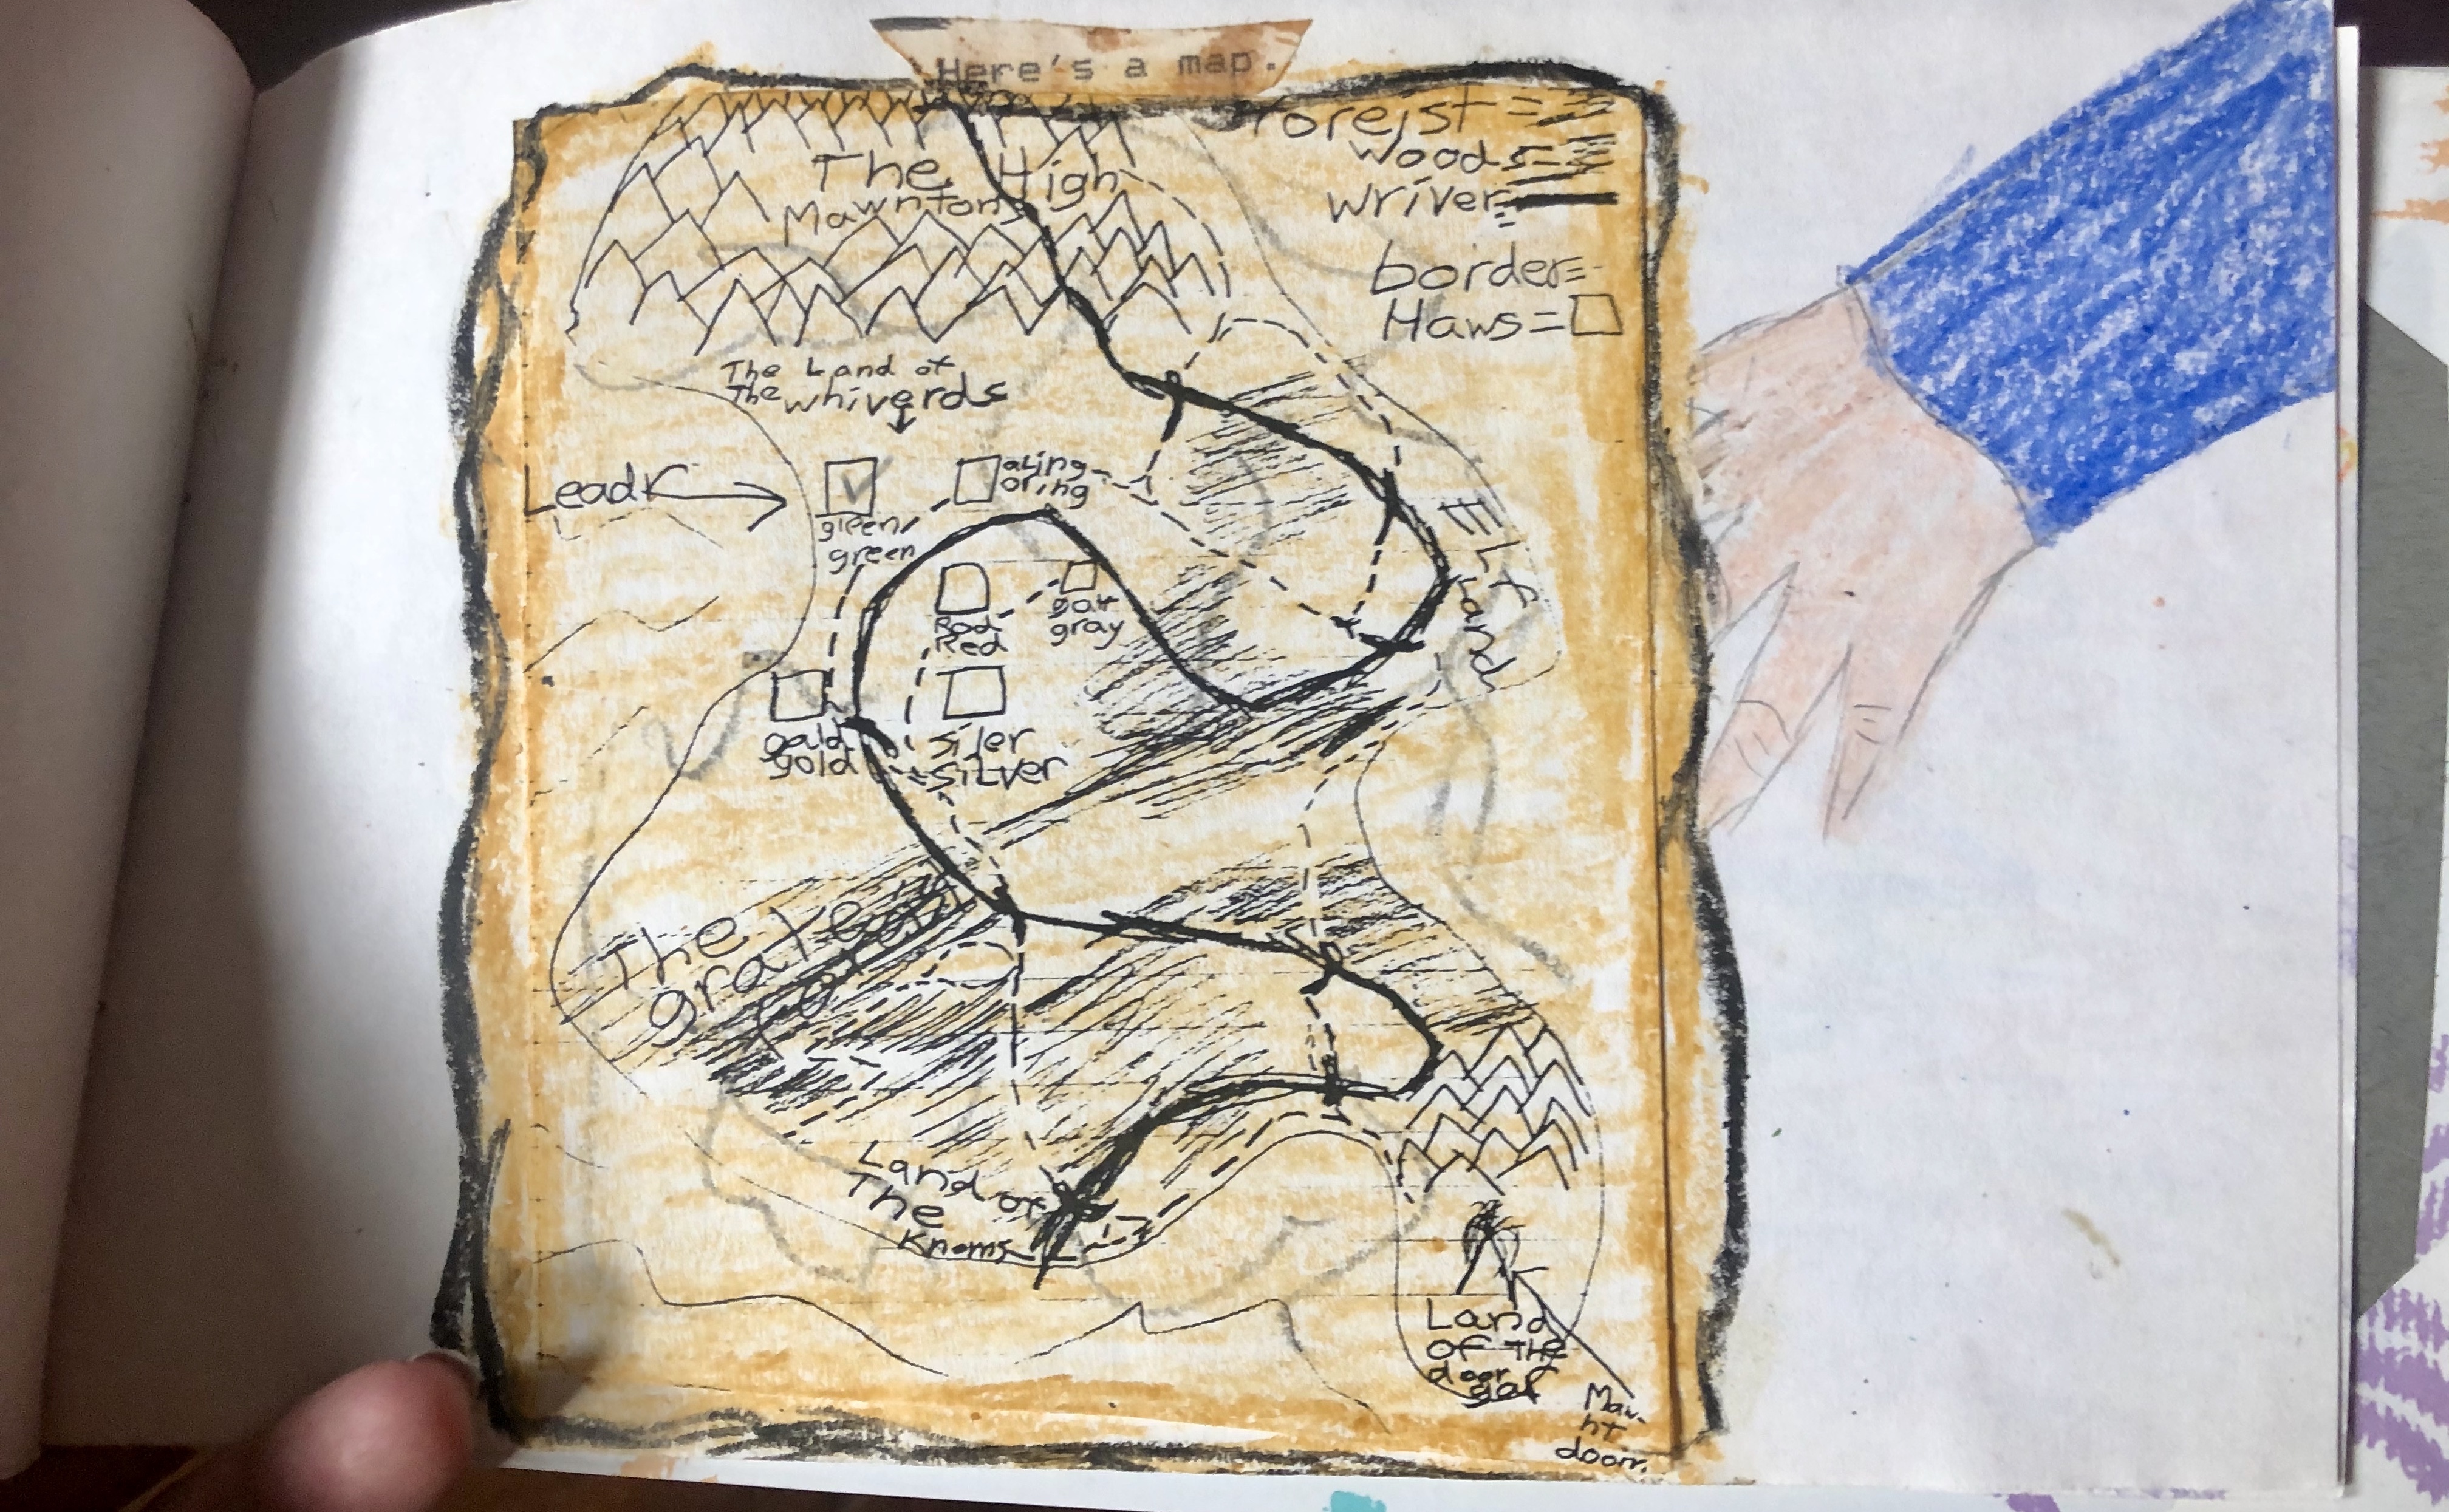 Here's a map.
foreist =
woods =
wriver =
border =
Haws =
The High
Mawntons
The Land of
The whiverds
Leadr
gleen
green
aling-
oring
Rad
Red
gar
gray
gald
gold
siler
silver
ELf
Land
The
grate
Land of
The
Knoms
Land
OF THE
door
gof
Maw-
nt
doom.